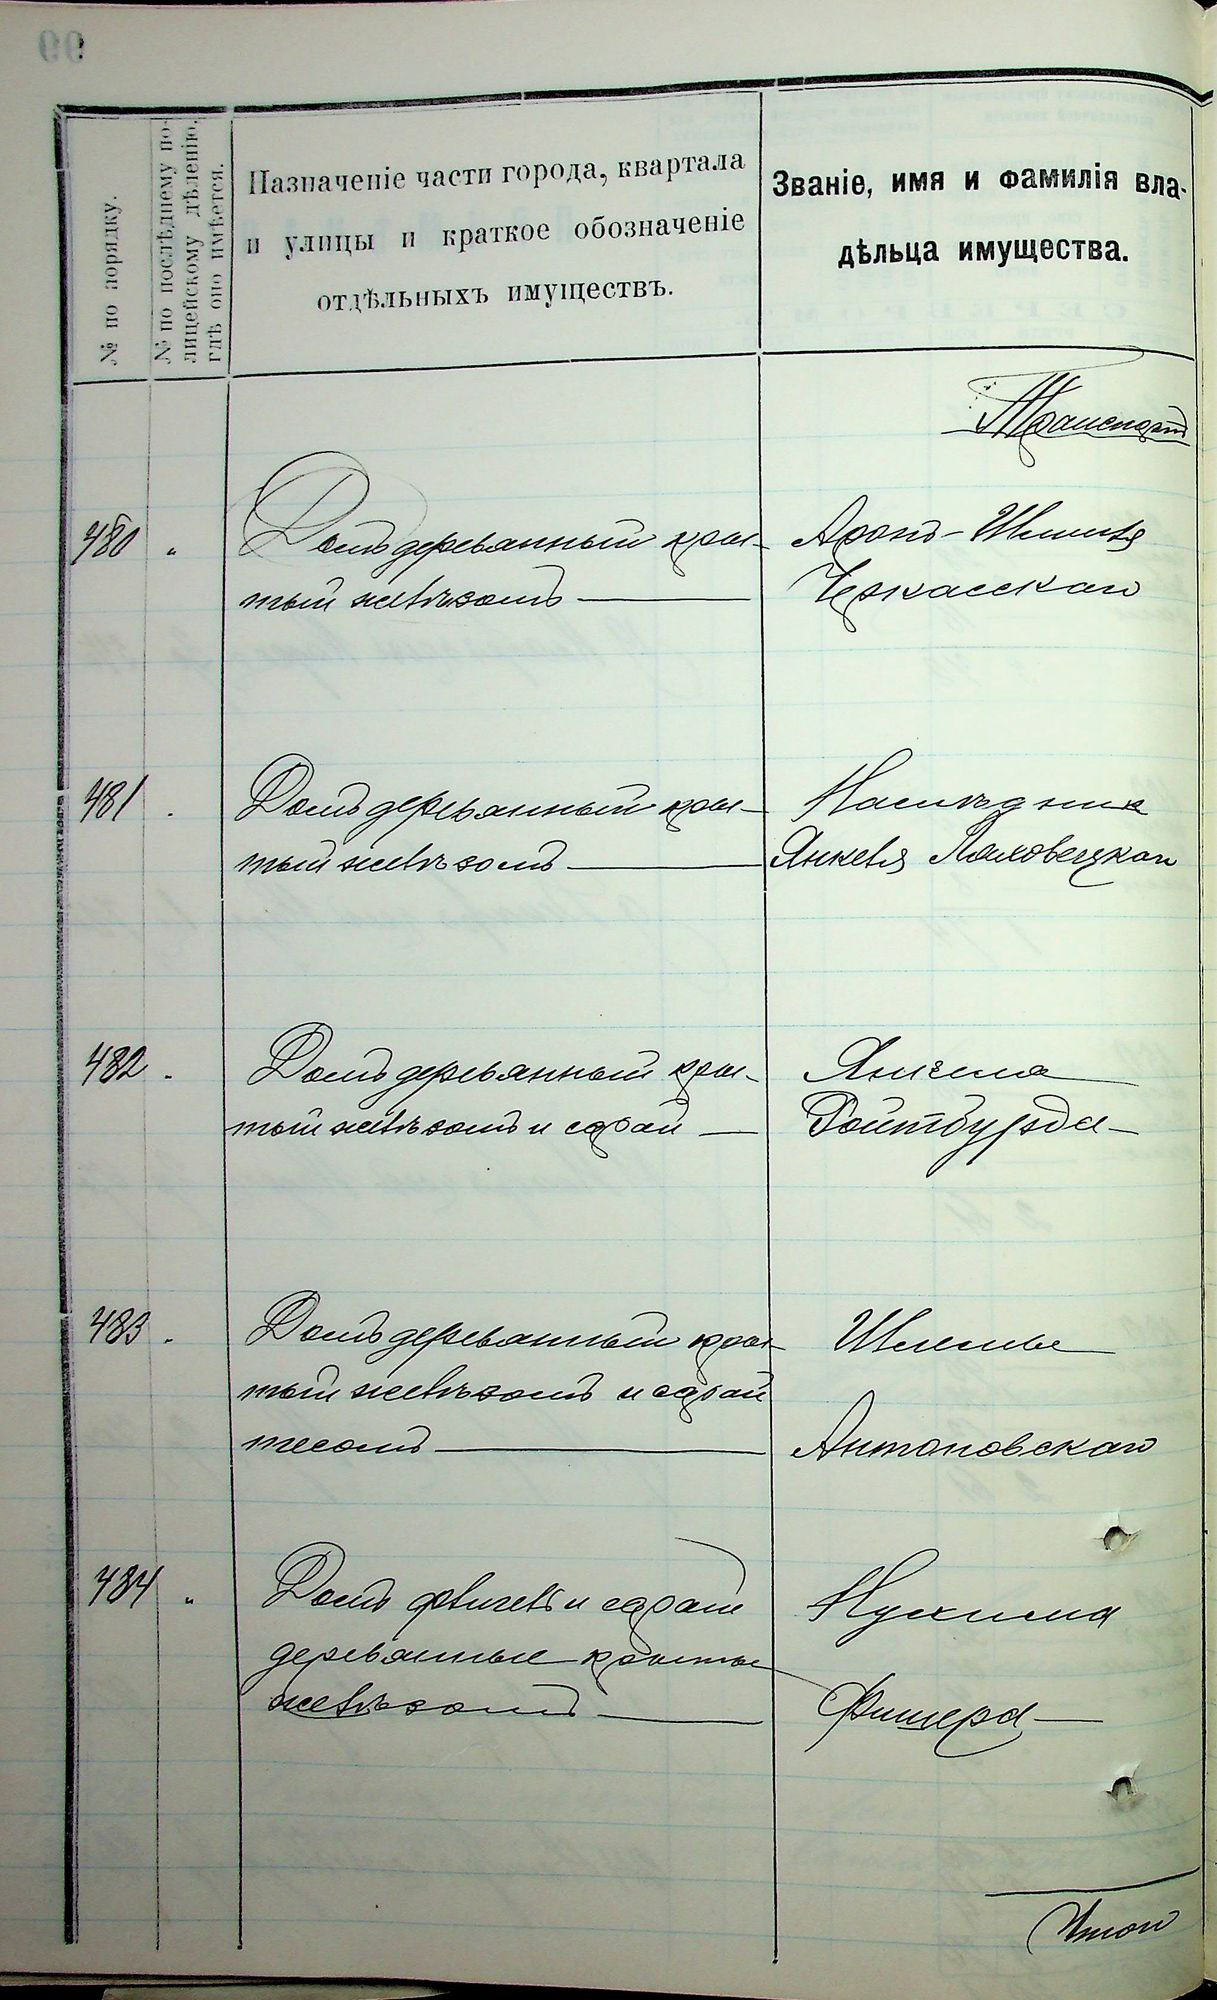 № по порядку.
№ по послѣднему по-
лицейскому дѣленію,
гдѣ оно имѣется.
Назначеніе части города, квартала
и улицы и краткое обозначеніе
отдѣльныхъ имуществъ.
Званіе, имя и фамилія вла-
дѣльца имущества.
Транспортъ
480 "
Домъ деревянный кры-
тый желѣзомъ
Аронъ-Шлиомы
Черкасскаго
481
Домъ деревянный кры-
тый желѣзомъ
Наслѣдник
Янкеля
482
Домъ деревянный кры-
тый желѣзомъ и сарай
Янкеля
Ройтбурда
483
Домъ деревянный кры-
тый желѣзомъ и сарай
тесомъ
Шлемы
Антоновскаго
484 "
Домъ флигель и сараи
деревянные крытые
желѣзомъ
Нухима
Фишера
Итого